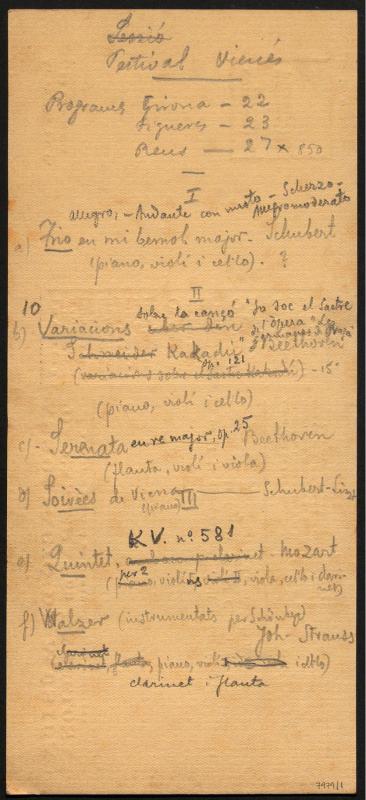 Sessió
Festival Vienès
Programes Girona - 22
Figueres - 23
Reus - 27 x 850
I
allegro, - Andante con moto - Scherzo -
Allegro moderato
a) Trio en mi bemol major - Schubert
(piano, violí i cel·lo) - ?
II
10
sobre la cançó "Jo soc el Sastre
b) Variacions über den
de l'òpera
Schneider Kakadú" Beethoven
op. 121
(variacions sobre el Sastre Kakadú) - 15'
(piano, violí i cel·lo)
c) - Serenata en re major, op. 25 Beethoven
(flauta, violí i viola)
d) Soirées de Viena Schubert-Liszt
(piano) III
K.V. nº 581
e) Quintet, Mozart
per 2
(piano, violins, viola, cel·lo i clarinet)
f) Walzer (instrumentats per Schönberg)
Joh. Strauss
clarinet
(clarinet, flauta, piano, violí i cel·lo)
clarinet i flauta
7979/1